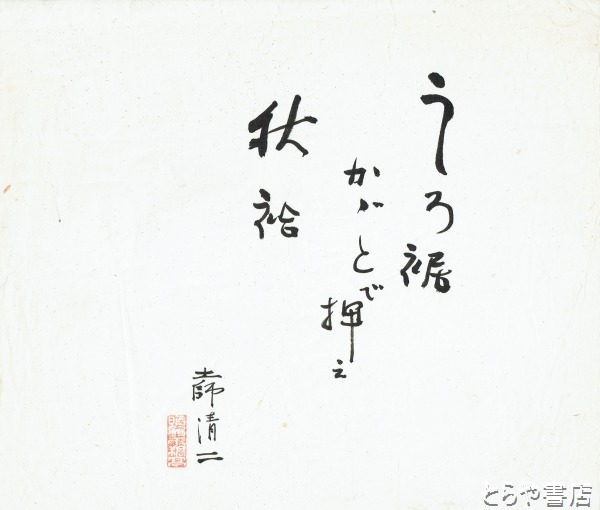 うしろ裾
かゞとで押え
秋袷
土師清二
とらや書店